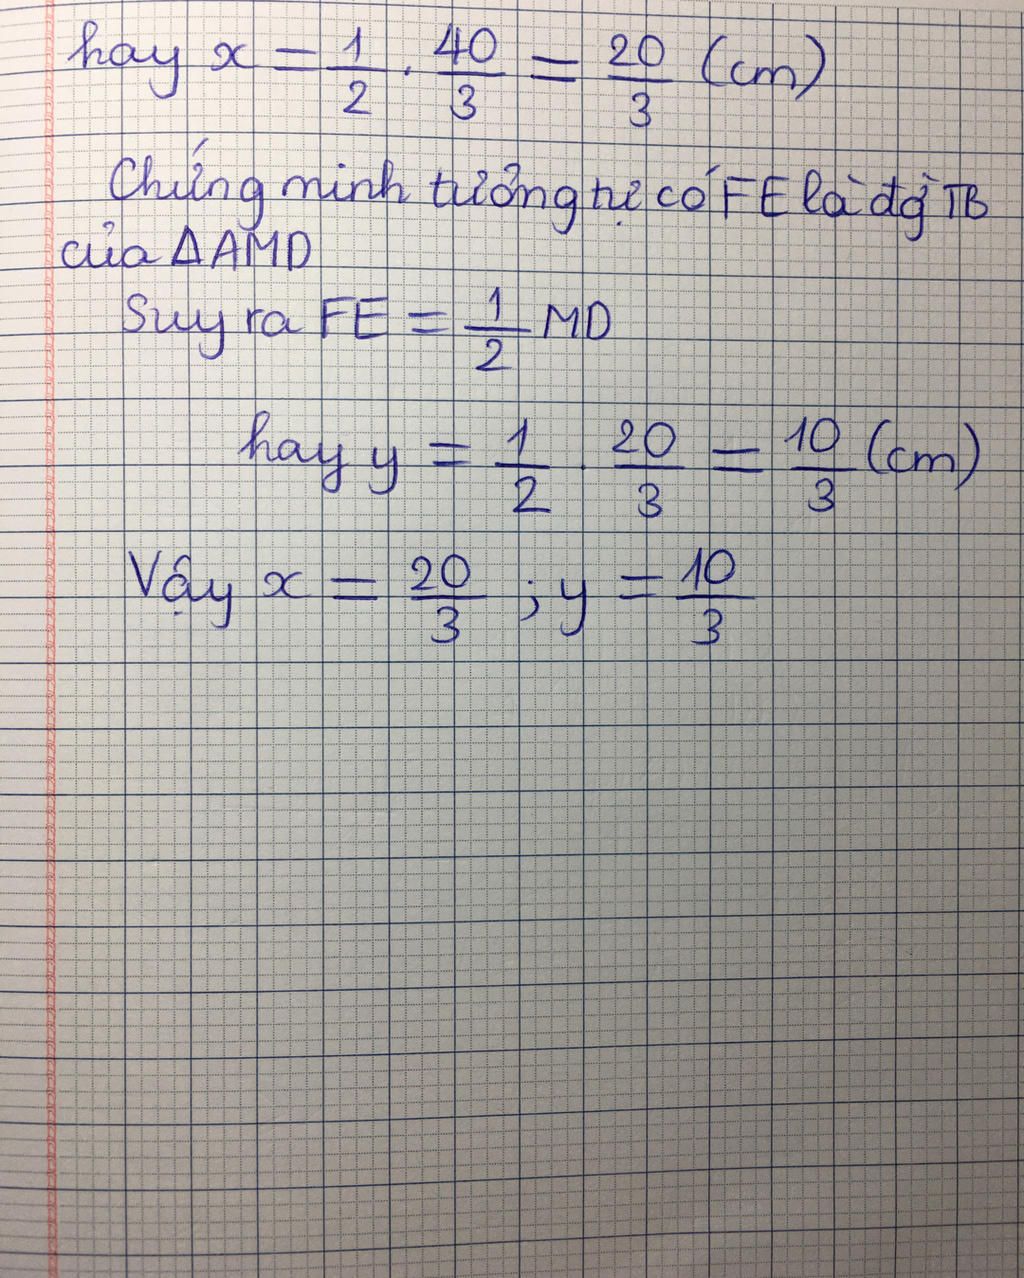 hay x = 1/2 . 40/3 = 20/3 (cm)
Chứng minh tương tự có FE là đg TB
của ΔAMD
Suy ra FE = 1/2 MD
hay y = 1/2 . 20/3 = 10/3 (cm)
Vậy x = 20/3 ; y = 10/3